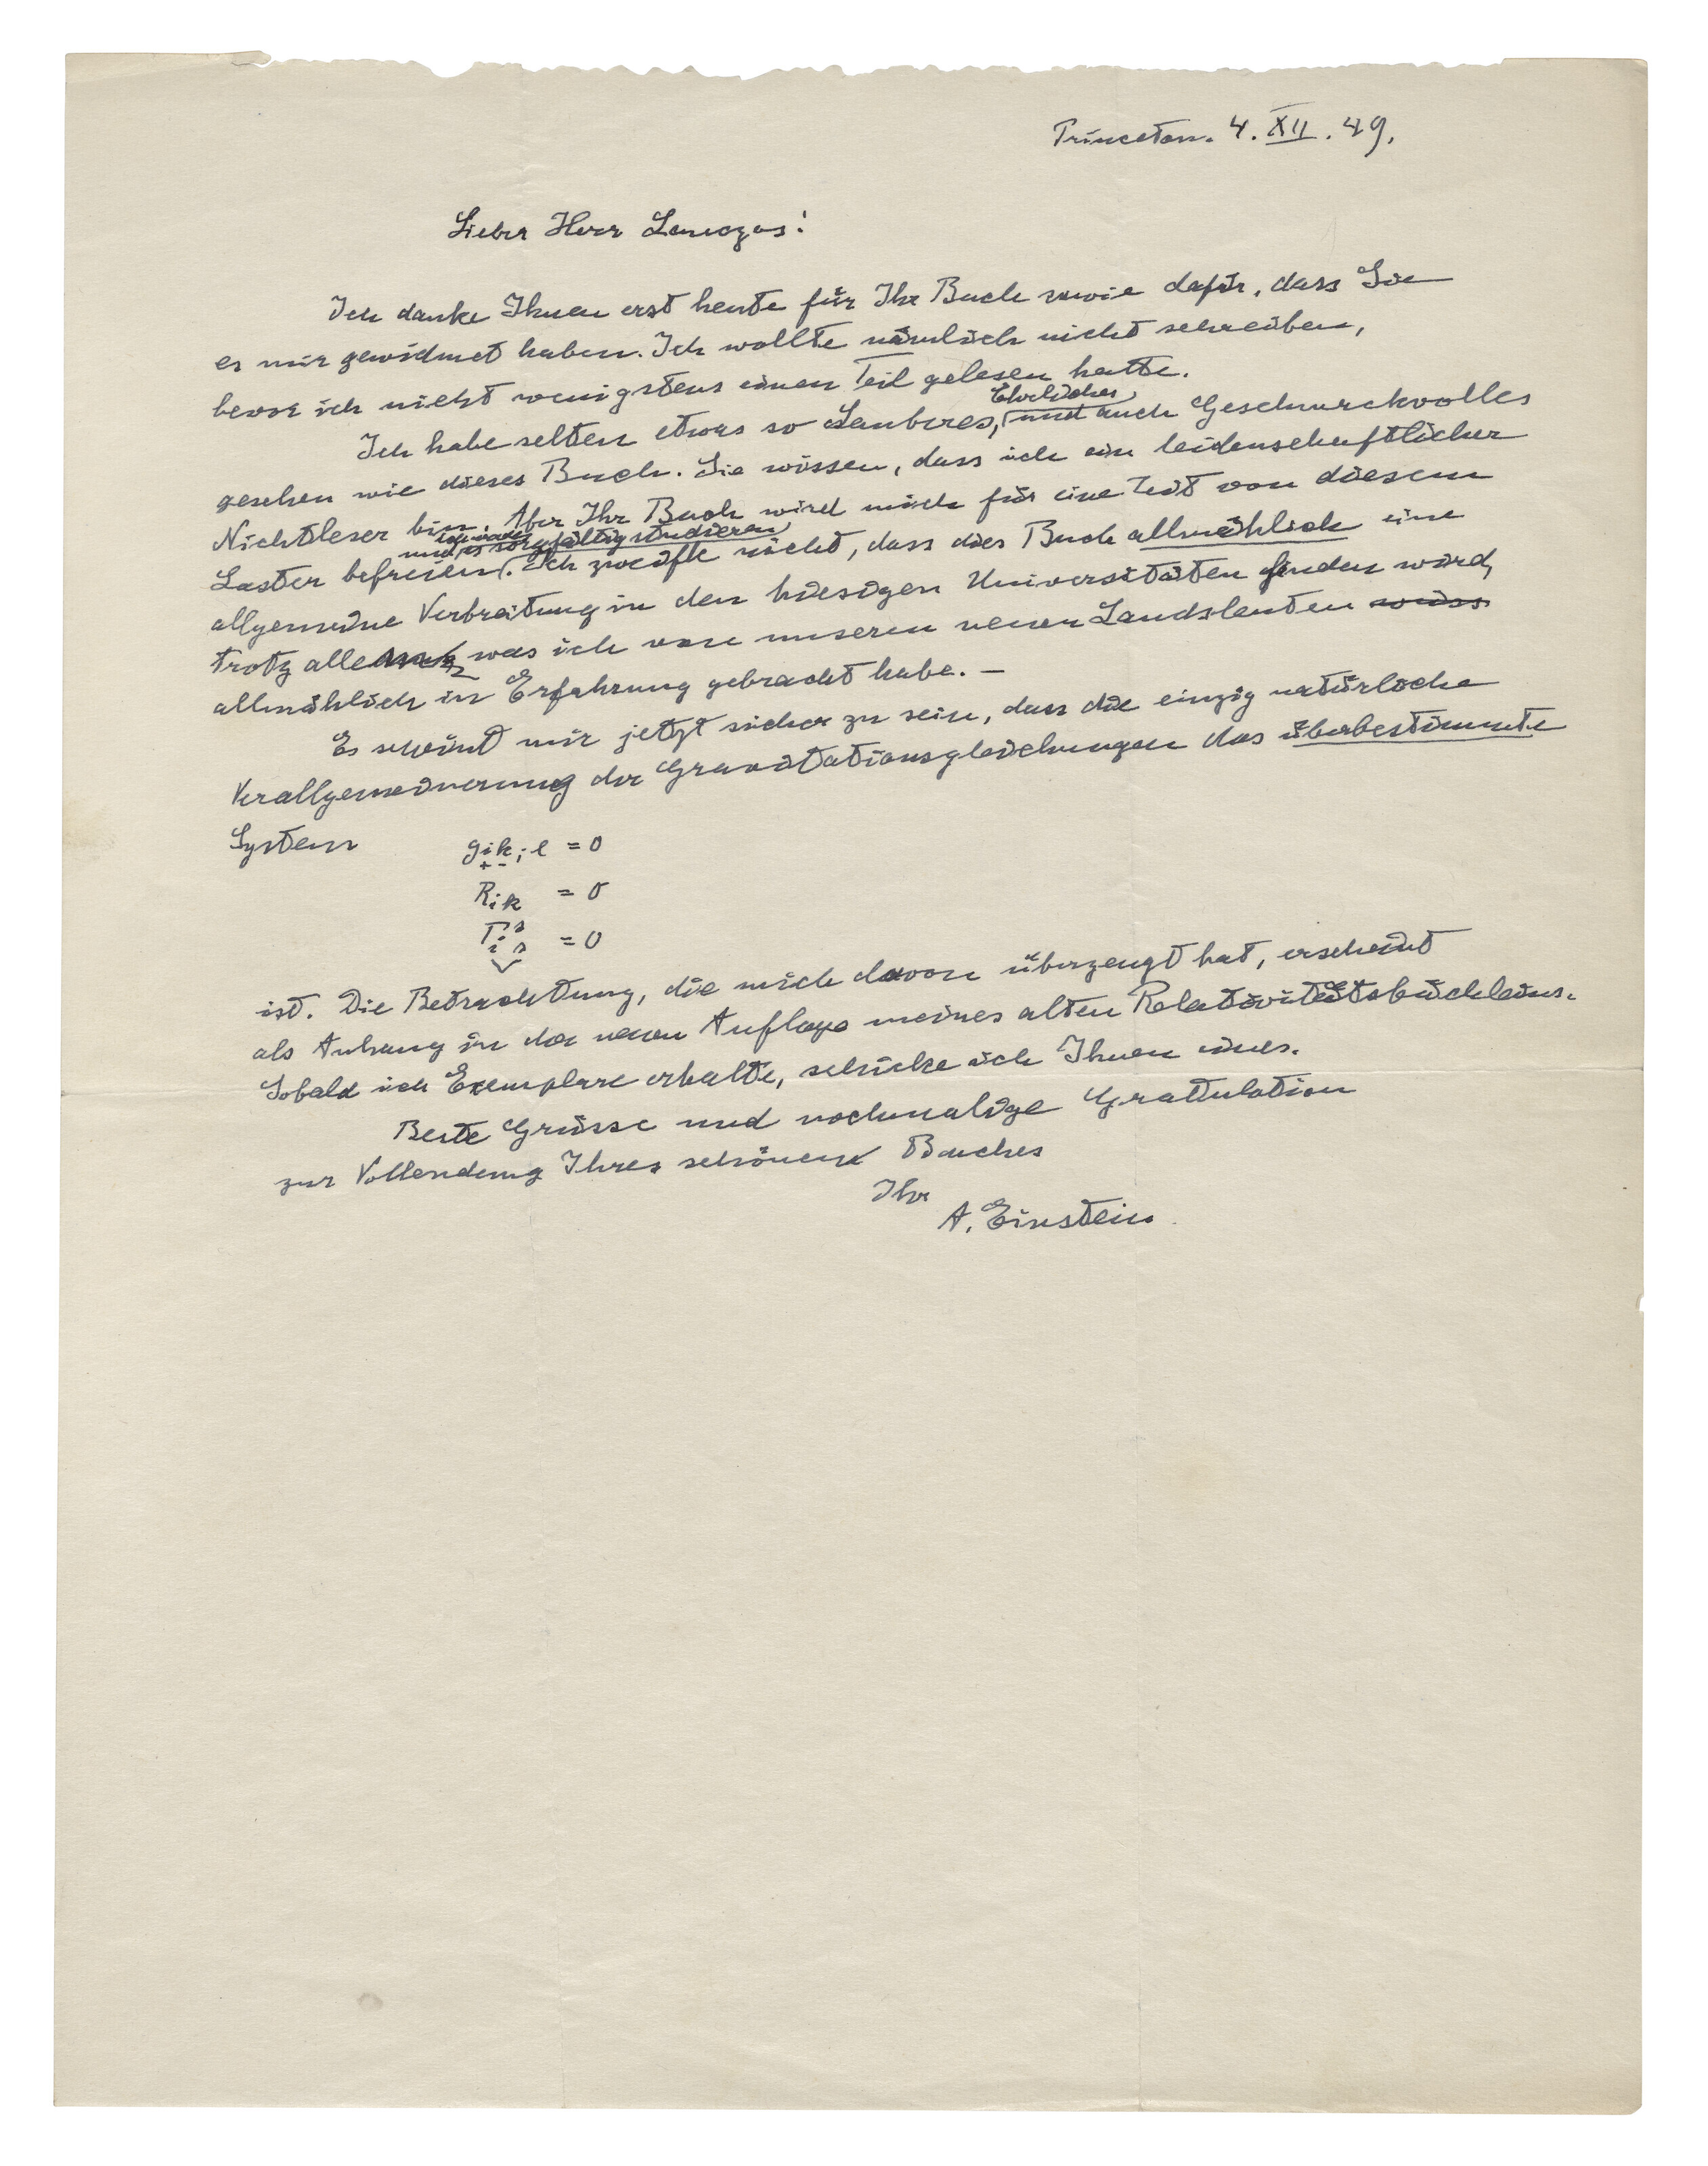 Princeton. 4. XII. 49.
Lieber Herr Lanczos!
Ich danke Ihnen erst heute für Ihr Buch sowie dafür, dass Sie
es mir gewidmet haben. Ich wollte nämlich nicht schreiben,
bevor ich nicht wenigstens einen Teil gelesen hatte.
Ehrliches
Ich habe selten etwas so Sauberes, und auch Geschmackvolles
gesehen wie dieses Buch. Sie wissen, dass ich ein leidenschaftlicher
Nichtleser bin. Aber Ihr Buch wird mich für eine Zeit von diesem
und ich werde es sorgfältig studieren
Laster befreien. Ich zweifle nicht, dass dies Buch allmählich eine
allgemeine Verbreitung in den hiesigen Universitäten finden wird,
trotz allem was ich von unseren neuen Landsleuten weiss
allmählich in Erfahrung gebracht habe. —
Es scheint mir jetzt sicher zu sein, dass die einzig natürliche
Verallgemeinerung der Gravitationsgleichungen das überbestimmte
System
gik;l = 0
+ -
Rik = 0
Γis s = 0
ist. Die Betrachtung, die mich davon überzeugt hat, erscheint
als Anhang in der neuen Auflage meines alten Relativitätsbüchleins.
Sobald ich Exemplare erhalte, schicke ich Ihnen eines.
Beste Grüsse und nochmalige Gratulation
zur Vollendung Ihres schönen Buches
Ihr
A. Einstein.